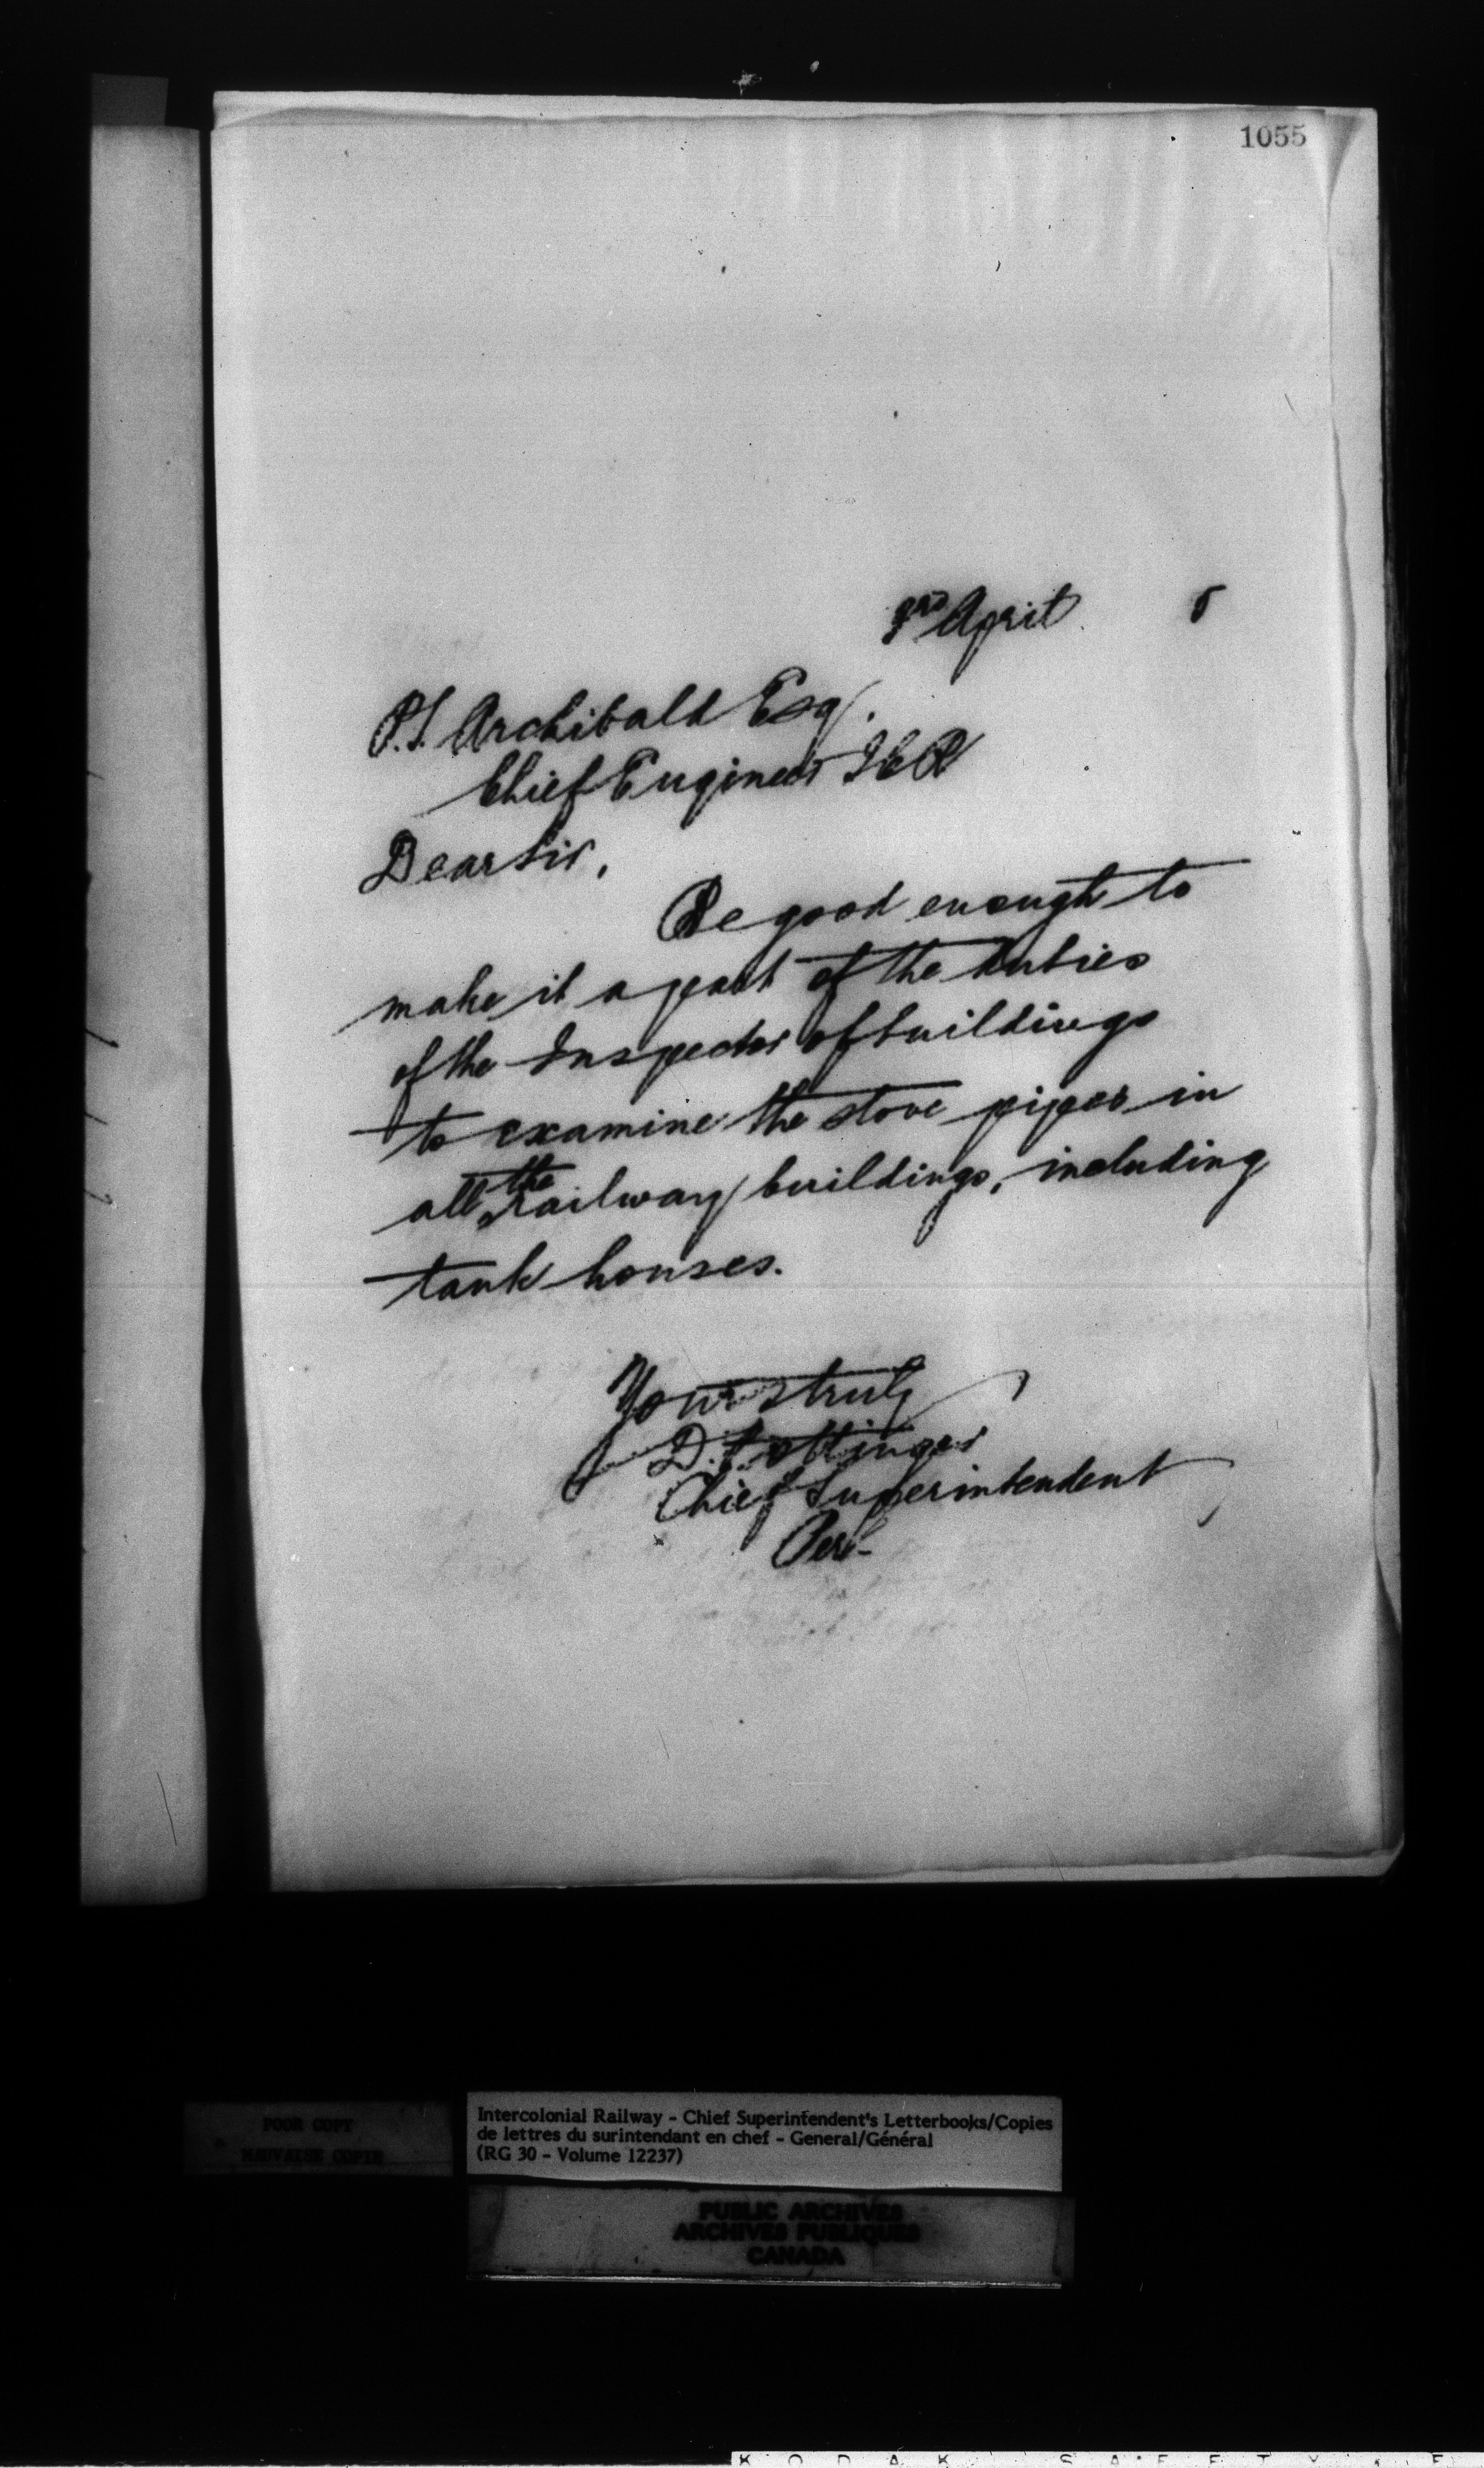 1055
3rd April 5
P.S. Archibald Esq.
Chief Engineer ICR
Dear Sir,
Be good enough to
make it a part of the duties
of the Inspector of buildings
to examine the stove pipes in
all the railway buildings, including
tank houses.
Yours truly
D. Pottinger
Chief Superintendent
Per
POOR COPY
MAUVAISE COPIE
Intercolonial Railway - Chief Superintendent's Letterbooks/Copies
de lettres du surintendant en chef - General/Général
(RG 30 - Volume 12237)
PUBLIC ARCHIVES
ARCHIVES PUBLIQUES
CANADA
KODAK SAFETY F